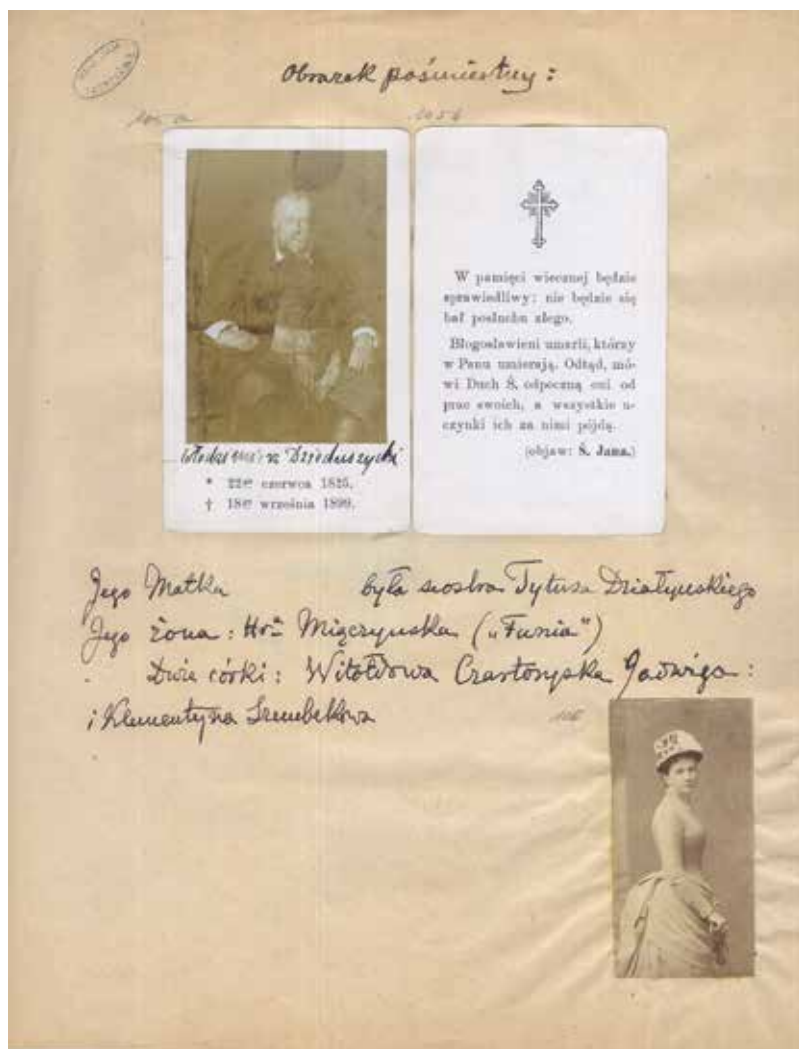 Obrazek pośmiertny:
105 a
105 b
Włodzimierz Dzieduszycki
* 22go czerwca 1825.
† 18go września 1899.
W pamięci wiecznej będzie
sprawiedliwy: nie będzie się
bał posłuchu złego.
Błogosławieni umarli, którzy
w Panu umierają. Odtąd, mó-
wi Duch Ś. odpoczną oni od
prac swoich, a wszystkie u-
czynki ich za nimi pójdą.
(objaw: Ś. Jana.)
Jego Matka była siostra Tytusa Działyńskiego
Jego żona: Hr. Miączyńska („Funia”)
Dwie córki: Witoldowa Czartoryska Jadwiga:
i Klementyna Szembekowa
106